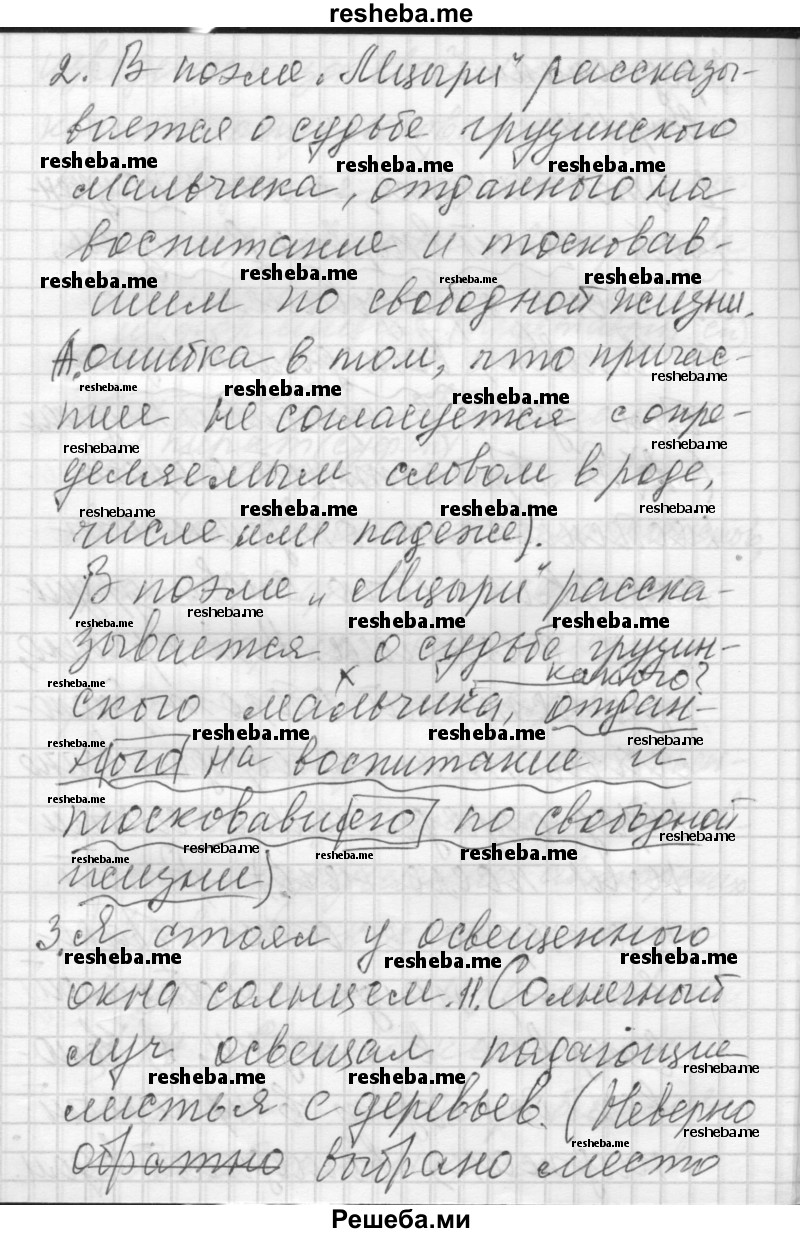 resheba.me
2. В поэме „Мцыри" рассказы-
вается о судьбе грузинского
resheba.me resheba.me resheba.me
мальчика, отданного на
воспитание и тосковав-
resheba.me resheba.me resheba.me resheba.me
шим по свободной жизни.
(А. ошибка в том, что причас-
resheba.me resheba.me resheba.me resheba.me
тие не согласуется с опре-
resheba.me resheba.me
деляемым словом в роде,
resheba.me resheba.me resheba.me resheba.me
числе или падеже).
В поэме „Мцыри" расска-
resheba.me resheba.me resheba.me resheba.me
зывается о судьбе грузин-
resheba.me х какого?
ского мальчика, отдан-
resheba.me resheba.me resheba.me resheba.me
ного на воспитание и
resheba.me
тосковавшего по свободной
resheba.me resheba.me resheba.me resheba.me resheba.me
жизни)
3. Я стоял у освещенного
resheba.me resheba.me resheba.me
окна солнцем. 11. Солнечный
луч освещал падающие
resheba.me resheba.me resheba.me
листья с деревьев. (Неверно
resheba.me resheba.me
обратно выбрано место
Решеба.ми